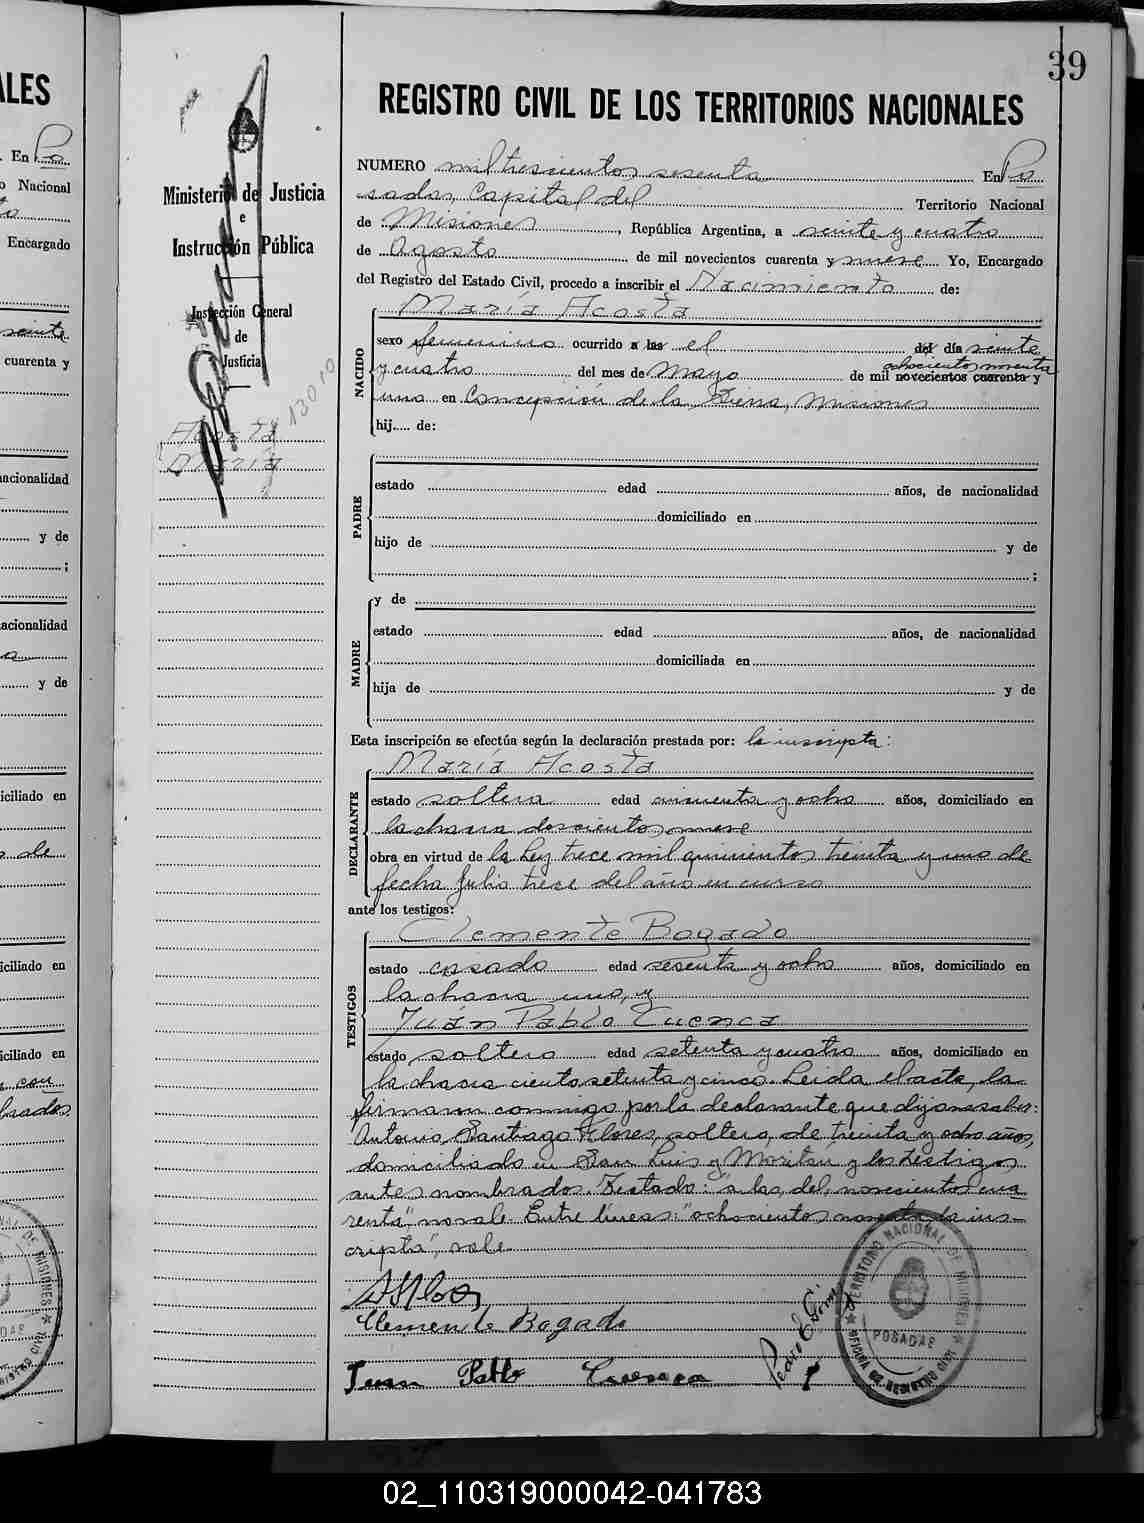 39
REGISTRO CIVIL DE LOS TERRITORIOS NACIONALES
Ministerio de Justicia
e
Instrucción Pública
Inspección General
de
Justicia
13010
Acosta
María
NUMERO mil trescientos sesenta En Po
sadas, Capital del Territorio Nacional
de Misiones, República Argentina, a veinte y cuatro
de Agosto de mil novecientos cuarenta y nueve Yo, Encargado
del Registro del Estado Civil, procedo a inscribir el Nacimiento de:
María Acosta
NACIDO
sexo femenino ocurrido a las el del día veinte
ochocientos noventa
y cuatro del mes de Mayo de mil novecientos cuarenta y
uno en Concepción de la Sierra, Misiones
hij.... de:
PADRE
estado edad años, de nacionalidad
domiciliado en
hijo de y de
;
MADRE
y de
estado edad años, de nacionalidad
domiciliada en
hija de y de
Esta inscripción se efectúa según la declaración prestada por: la inscripta:
DECLARANTE
María Acosta
estado soltera edad cincuenta y ocho años, domiciliado en
la chacra doscientos nueve
obra en virtud de la Ley trece mil quinientos treinta y uno de
fecha Julio trece del año en curso
ante los testigos:
TESTIGOS
Clemente Bogado
estado casado edad sesenta y ocho años, domiciliado en
la chacra uno, y
Juán Pablo Cuenca
estado soltero edad setenta y cuatro años, domiciliado en
la chacra ciento setenta y cinco. Leida el acta, la
firmaron conmigo por la declarante que dijo no saber:
Antonio Santiago Flores, soltero, de treinta y ocho años,
domiciliado en San Luis y Moritán y los testigos
antes nombrados. Testado: "a las, del, novecientos cua
renta", no vale. Entre líneas: "ochocientos noventa, la ins-
cripta", vale.
ASFlores
Clemente Bogado
Juan Pablo Cuenca
Pedro
TERRITORIO NACIONAL DE MISIONES
POSADAS
OFICINA DE REGISTRO CIVIL
ALES
En Po
Nacional
Encargado
veinte
cuarenta y
nacionalidad
y de
;
acionalidad
y de
iciliado en
de
iciliado en
iciliado en
con
brados
DE MISIONES
02_110319000042-041783